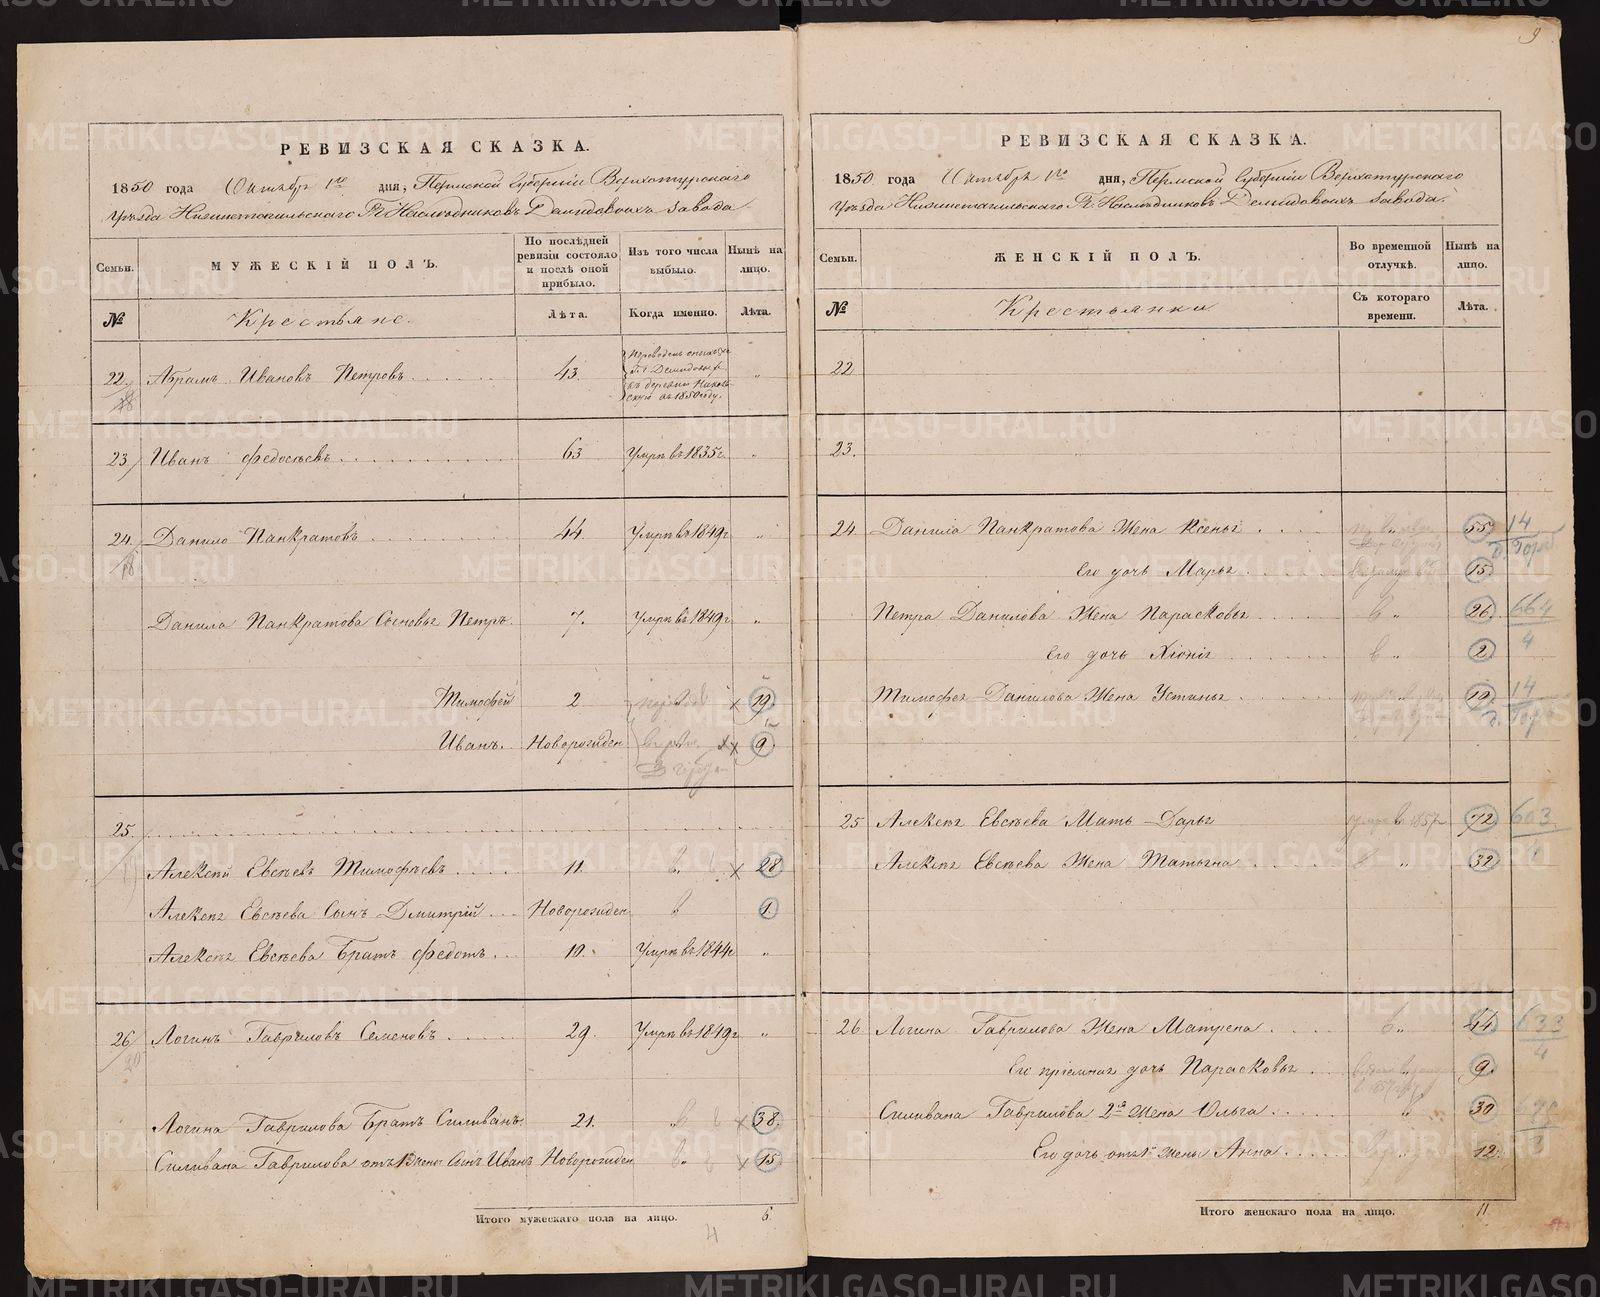 9
РЕВИЗСКАЯ СКАЗКА.
1850 года Октября 1го дня, Пермской Губернiи Верхотурскаго
Уѣзда Нижнетагильскаго Гг. Наслѣдниковъ Демидовыхъ завода
Семьи.
МУЖЕСКІЙ ПОЛЪ.
По послѣдней ревизіи состояло и послѣ оной прибыло.
Изъ того числа выбыло.
Нынѣ на лицо.
№
Крестьяне.
Лѣта.
Когда именно.
Лѣта.
22. Абрамъ Ивановъ Петровъ 43. въ 1850 году. „
23 Иванъ Федосѣевъ 63 Умръ въ 1835 г „
24. Данило Панкратовъ 44. Умръ въ 1849 г „
18
Данила Панкратова Сыновья Петръ. 7. Умръ въ 1849 г „
Тимофей 2 х 19.
Иванъ. Новорожден хх 9.
25.
Алексѣй Евсѣевъ Тимофѣевъ 11. х 28
Алексѣя Евсѣева Сынъ Дмитрій Новорожден 1.
Алексѣя Евсѣева Братъ Федотъ 10. Умръ въ 1844 г „
26 Логинъ Гавриловъ Семеновъ 29. Умръ въ 1849 г „
20
Логина Гаврилова Братъ Силиванъ 21. х 38.
Силивана Гаврилова отъ 1 жены Сынъ Иванъ Новорожден х 15
Итого мужескаго пола на лицо. 6.
4
РЕВИЗСКАЯ СКАЗКА.
1850 года Октября 1го дня, Пермской Губернiи Верхотурскаго
Уѣзда Нижнетагильскаго Гг. Наслѣдниковъ Демидовыхъ завода.
Семьи.
ЖЕНСКІЙ ПОЛЪ.
Во временной отлучкѣ.
Нынѣ на лицо.
№
Крестьянки
Съ котораго времени.
Лѣта.
22
23.
24. Данила Панкратова Жена Ксенья 55 14
Его дочь Марья 15
Петра Данилова Жена Парасковья 26. 664
Его дочь Хіонія 2. 4
Тимофея Данилова Жена Устинья 19. 14
25 Алексѣя Евсѣева Мать Дарья 72 603
Алексѣя Евсѣева Жена Татьяна „ 32
26 Логина Гаврилова Жена Матрена „ 44 633
4
Его пріемная дочь Парасковья 9.
Силивана Гаврилова 2я жена Ольга „ 30
Его дочь отъ 1й жены Анна 12.
Итого женскаго пола на лицо. 11
METRIKI.GASO-URAL.RU